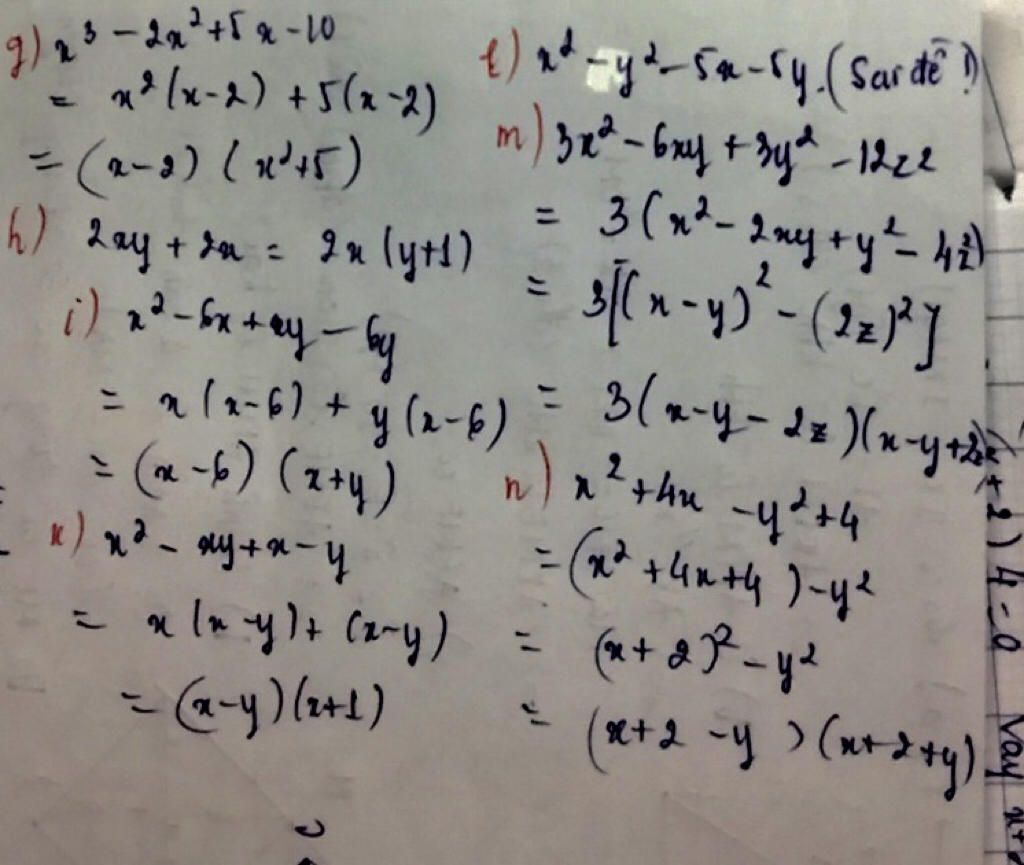 g) x³ - 2x² + 5x - 10
= x²(x-2) + 5(x-2)
= (x-2) (x²+5)
h) 2xy + 2x = 2x (y+1)
i) x² - 6x + xy - 6y
= x (x-6) + y (x-6)
= (x-6) (x+y)
k) x² - xy + x - y
= x (x-y) + (x-y)
= (x-y)(x+1)
l) x² - y² - 5x - 5y. (Sai đề !)
m) 3x² - 6xy + 3y² - 12z²
= 3 (x² - 2xy + y² - 4z²)
= 3[(x-y)² - (2z)²]
= 3(x-y-2z)(x-y+2z)
n) x² + 4x - y² + 4
= (x² + 4x + 4) - y²
= (x+2)² - y²
= (x+2-y) (x+2+y)
+2) 4=0
Vay x+